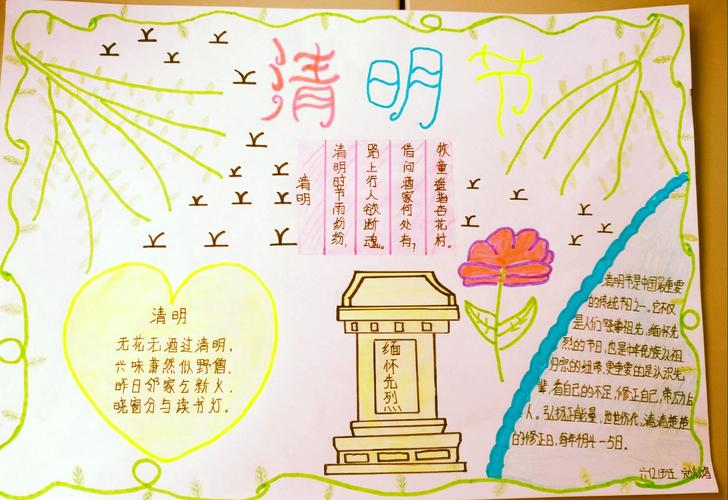 清明节
清明
清明时节雨纷纷,
路上行人欲断魂。
借问酒家何处有?
牧童遥指杏花村。
清明
无花无酒过清明,
兴味萧然似野僧.
昨日邻家乞新火.
晓窗分与读书灯.
缅怀先烈
清明节是中国最重要
的传统节日之一。它不仅
是人们祭奠祖先,缅怀先
烈的节日,也是中华民族认祖
归宗的纽带,更重要的是认识先
辈,看自己的不足,修正自己,带
人。弘扬正能量,世世代代,清清楚楚
的修正日,每年4月4-5日。
六(2)班